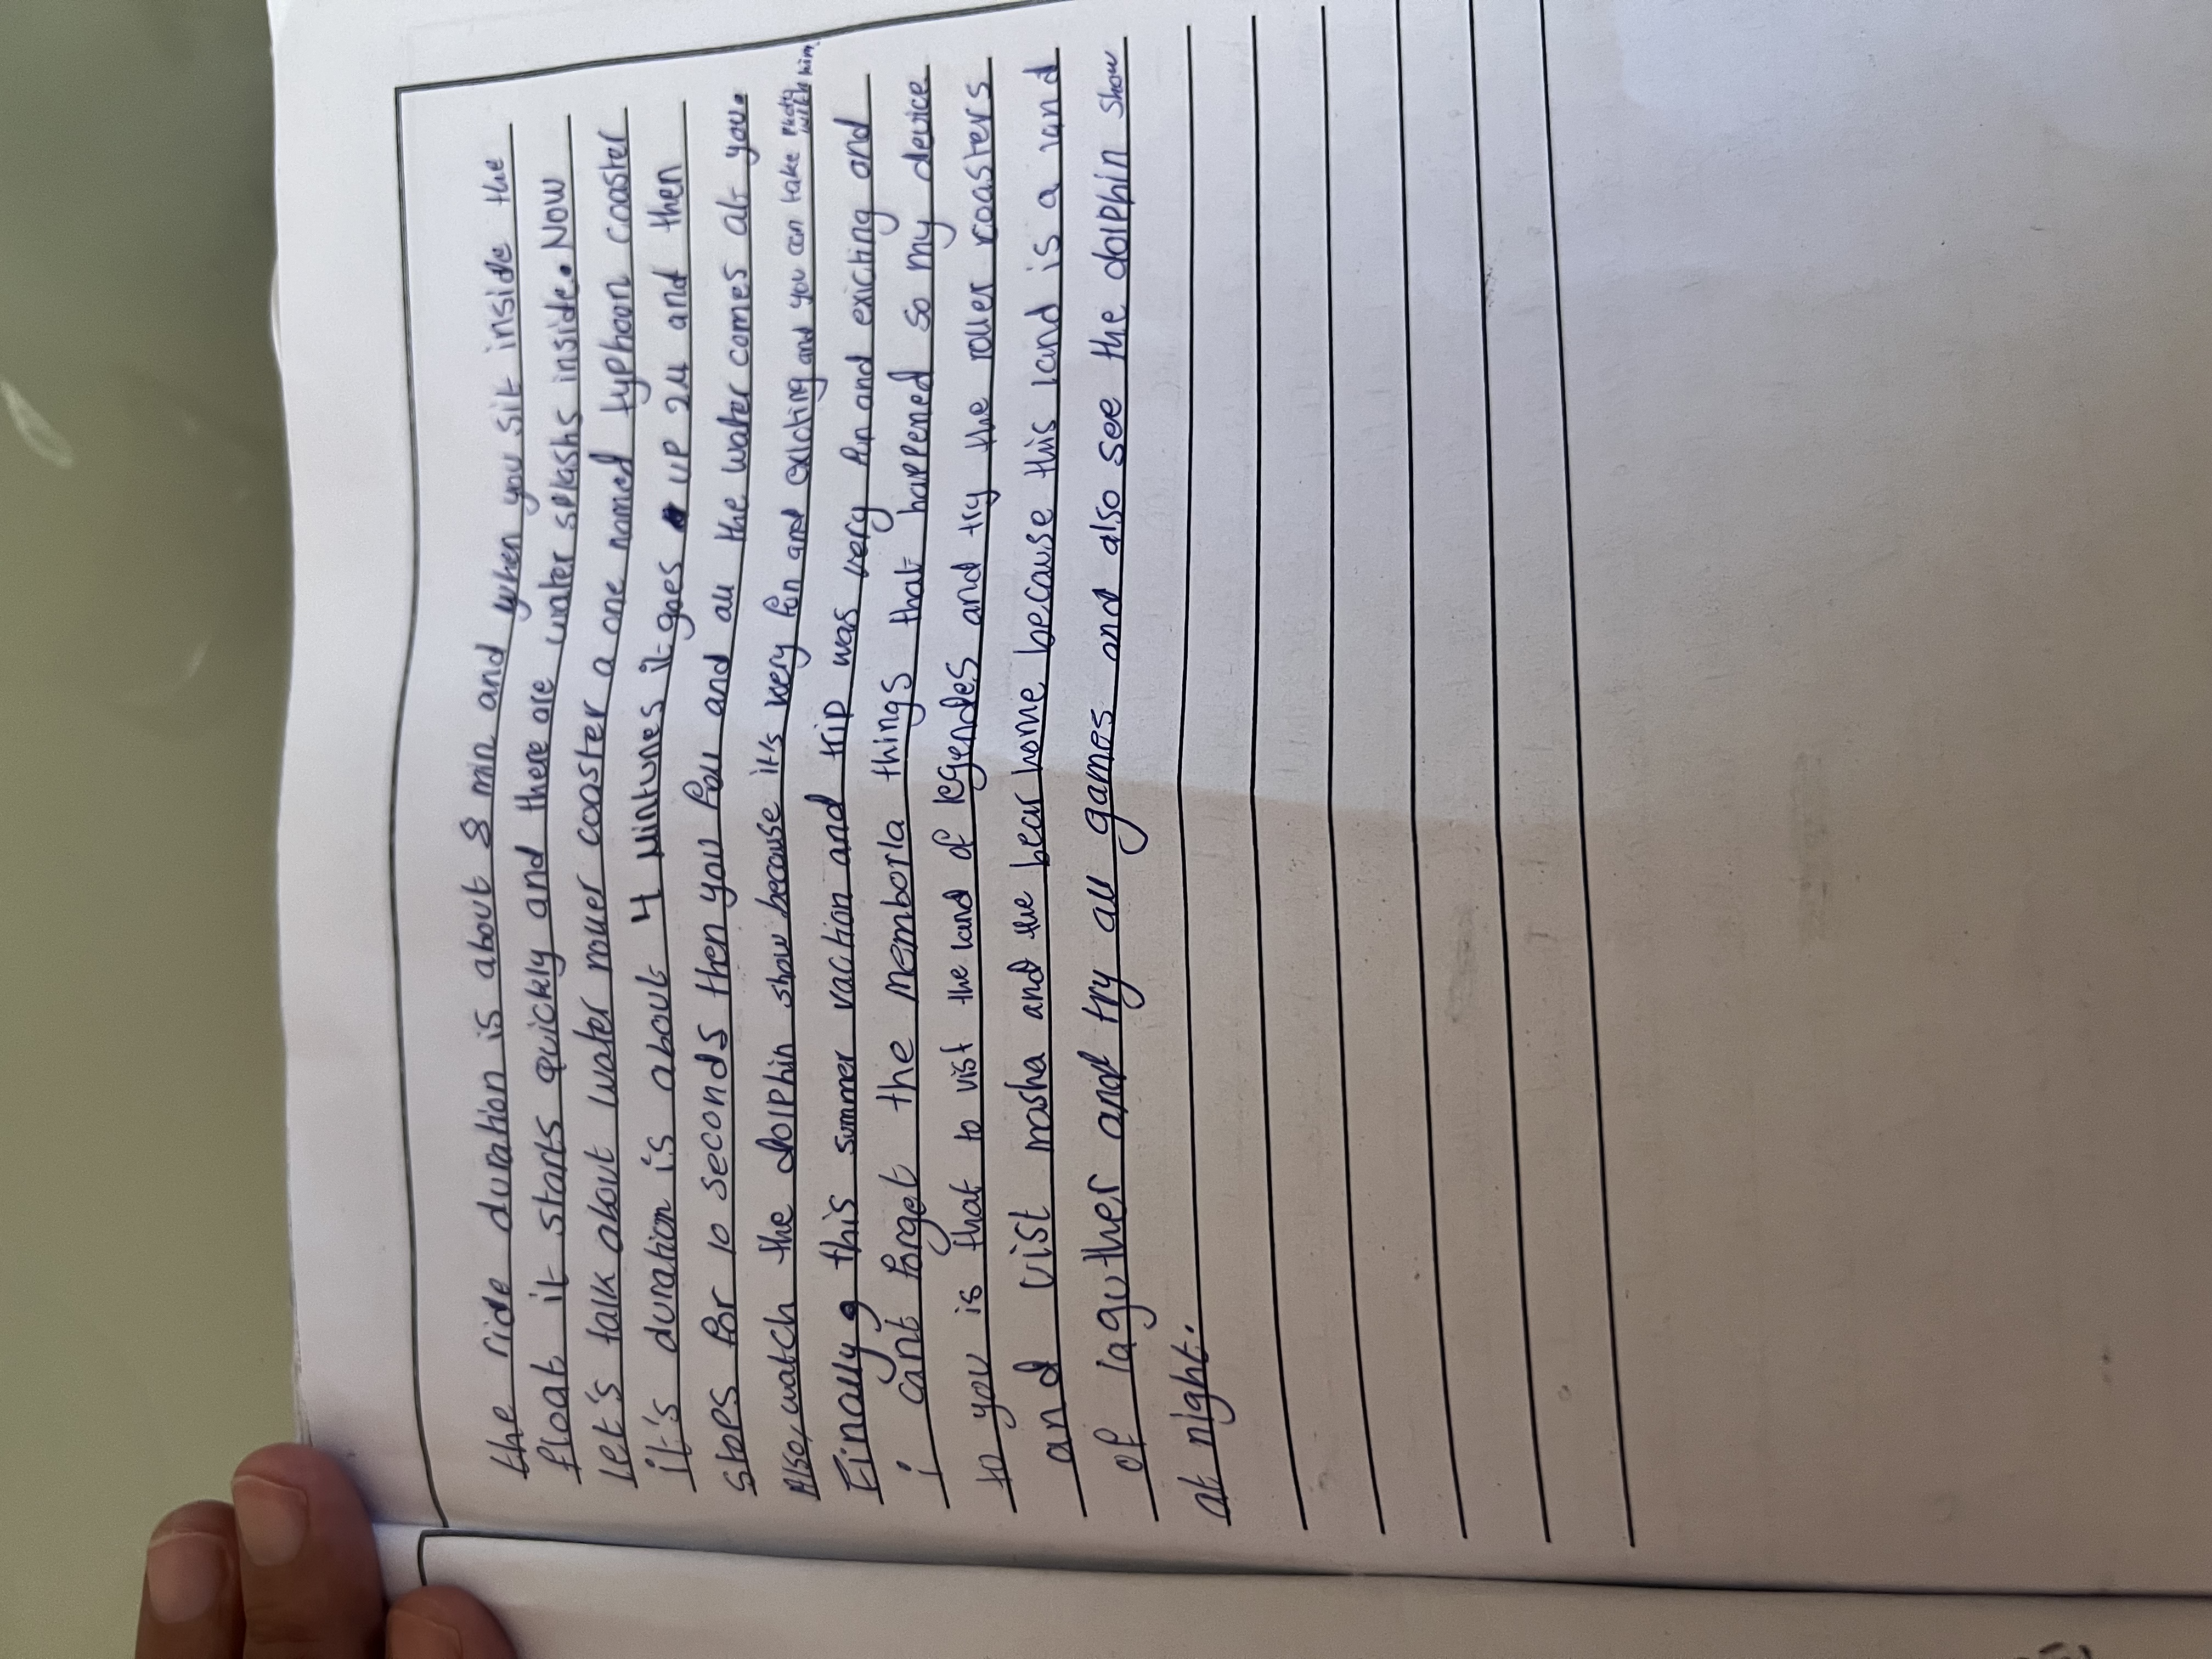 the ride duration is about 8 min and when you sit inside the
float it starts quickly and there are water splashs inside. Now
let's talk about water roller coaster a one named typhoon coaster
it's duration is about 4 Mintunes it goes up 24 and then
stops for 10 seconds then you fall and all the water comes at you.
Also, watch the dolphin show because it's very fun and exicting and you can take photo with him.
Finally, this summer vaction and trip was very fun and exicting and
i cant forget the memborla things that happened so my device
to you is that to vist the land of legendes and try the roller coasters
and vist masha and the bear home because this land is a land
of laguther and try all games and also see the dolphin show
at night.